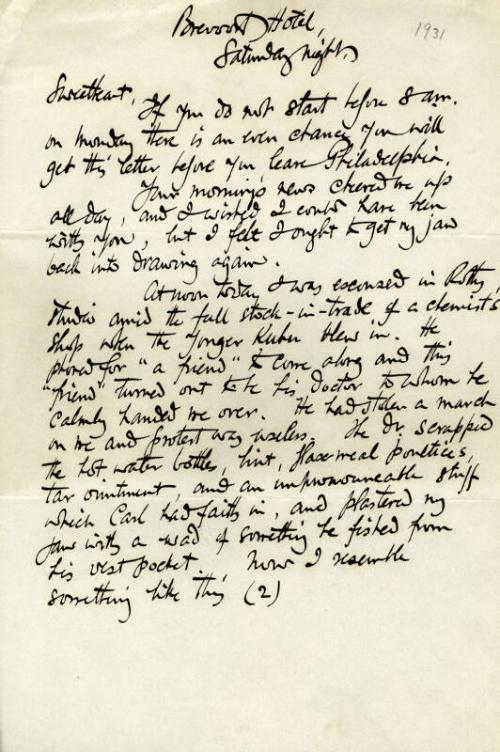 Brevoort Hotel,
1931
Saturday night.
Sweetheart,
If you do not start before 8 am.
on Monday there is an even chance you will
get this letter before you leave Philadelphia.
Your morning's news cheered me up
all day, and I wished I could have been
with you, but I felt I ought to get my jaw
back into drawing again.
At noon today I was ensconced in
studio amid the full stock-in-trade of a chemist's
shop when the Younger blew in. He
phoned for "a friend" to come along and this
"friend" turned out to be his doctor to whom he
calmly handed me over. He had stolen a march
on me and protest was useless. The Dr. scrapped
the hot water bottles, lint, poultices,
tar ointment, and an unpronounceable stuff
which Carl had faith in, and plastered my
jaw with a wad of something he fished from
his vest pocket. Now I resemble
something like this (2)